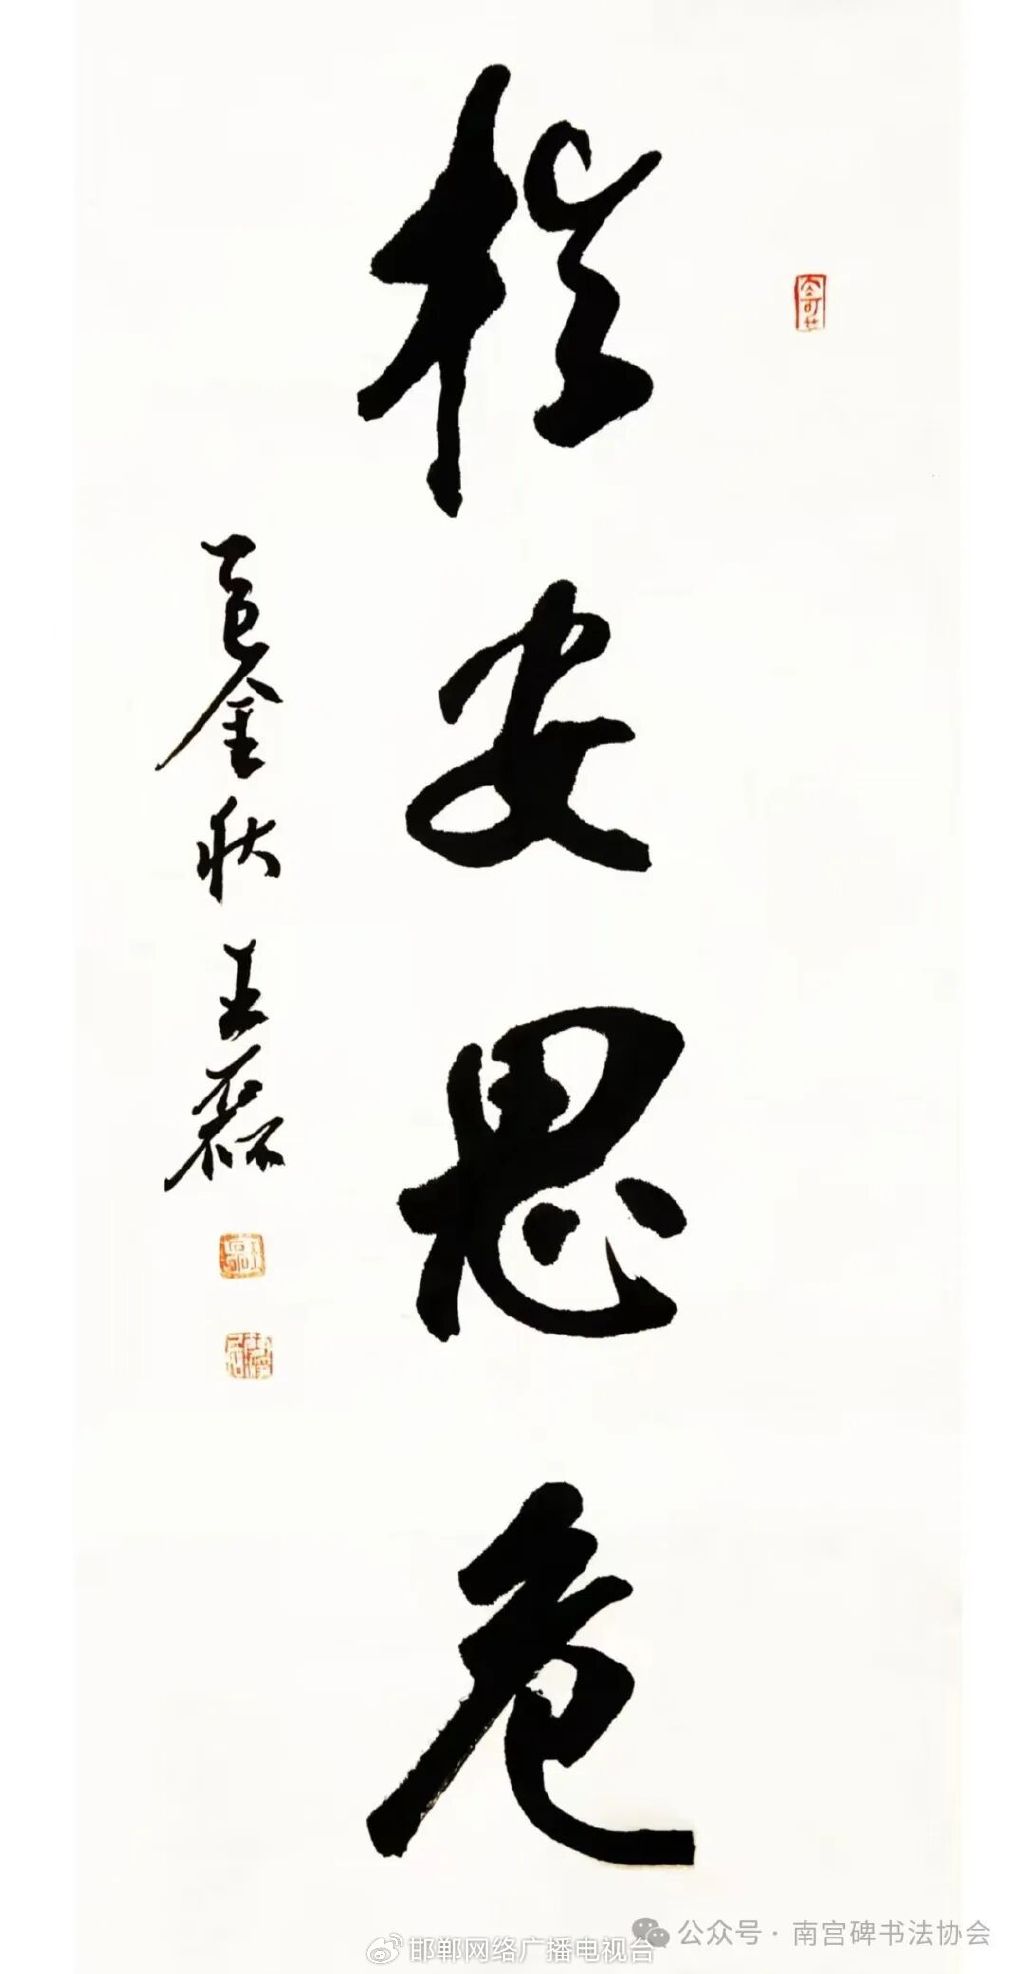 於安思危
乙巳金秋王磊
公众号·南宫碑书法协会
邯郸网络广播电视台